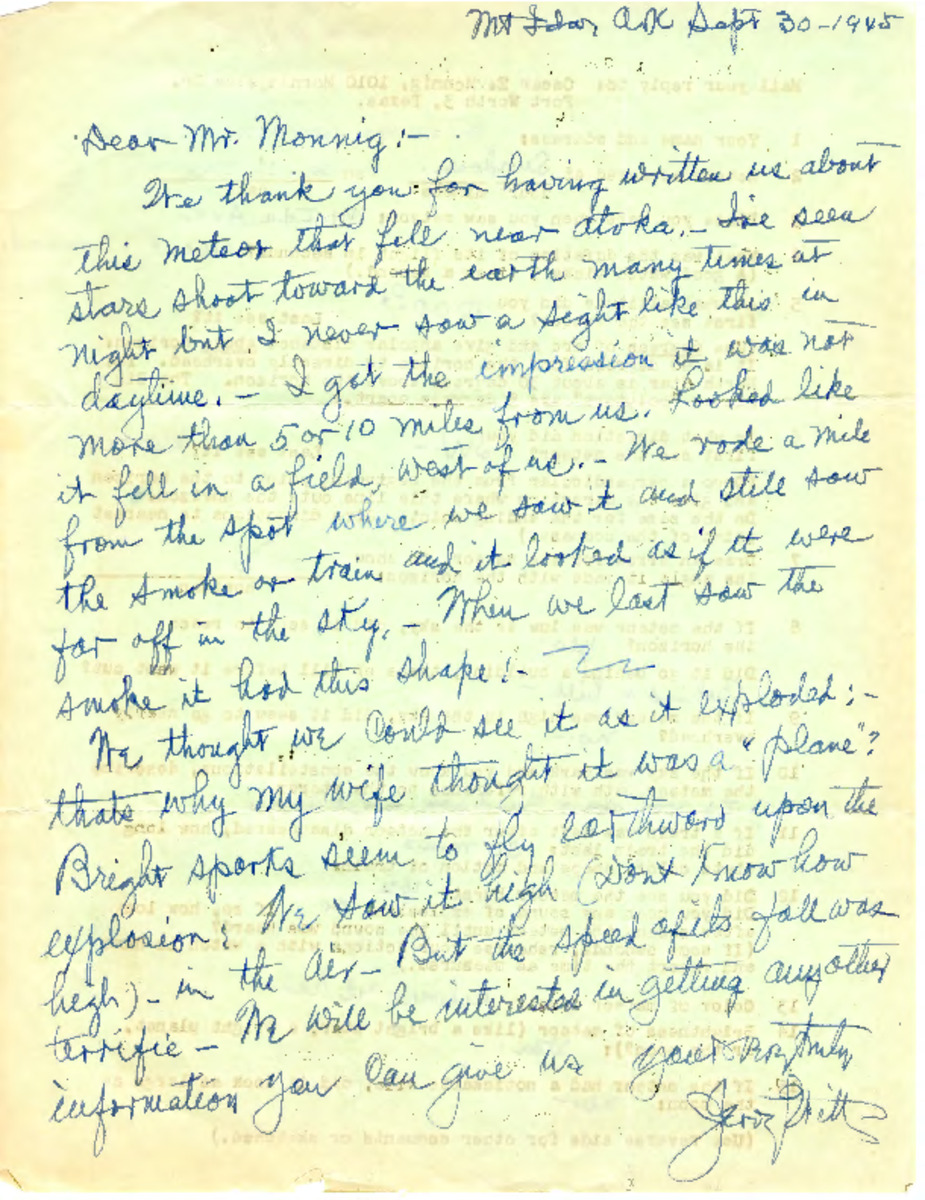 Mt Ida, Ark Sept 30-1945
Dear Mr. Monnig:-
We thank you for having written us about
this meteor that fell near Atoka.- I've seen
stars shoot toward the earth many times at
night but I never saw a sight like this in
daytime.- I got the impression it was not
more than 5 or 10 miles from us. Looked like
it fell in a field, west of us.- We rode a mile
from the spot where we saw it and still saw
the smoke or train and it looked as if it were
far off in the sky.- When we last saw the
smoke it had this shape:-
We thought we could see it as it exploded:-
thats why my wife thought it was a "plane"?
Bright sparks seem to fly earthward upon the
explosion. We saw it high (Dont know how
high)- in the air- But the speed of its fall was
terrific- We will be interested in getting any other
information you can give us Yours very truly